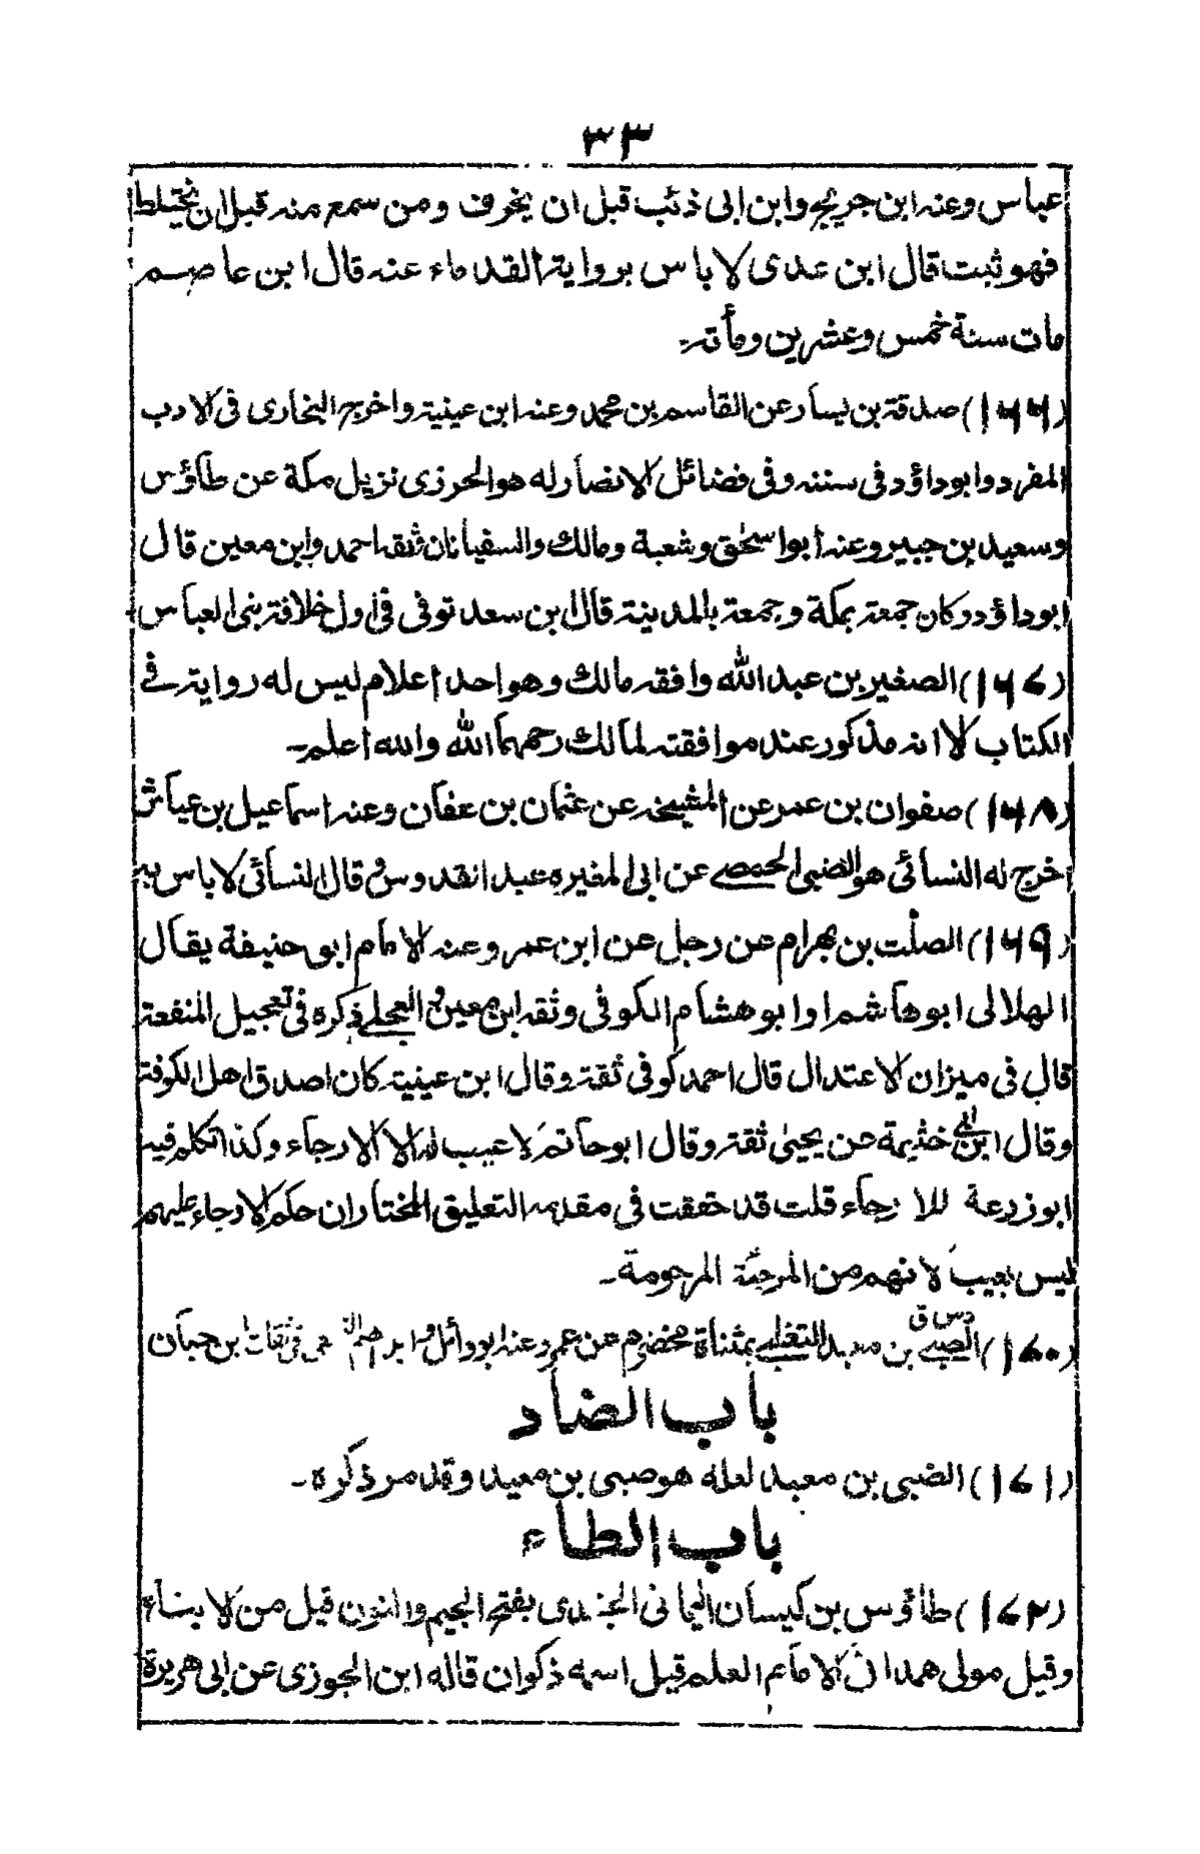 ٣٣
عباس وعنه ابن جريج وابن ابى ذئب قبل ان يخرف ومن سمع منه قبل ان يختلط
فهو ثبت قال ابن عدى لا باس برواية القدماء عنه قال ابن عاصم
مات سنة خمس وعشرين ومأته۔
(١٦٦) صدقة بن يسار عن القاسم بن محمد وعنه ابن عينية واخرج البخارى فى الادب
المفرد وابوداؤد فى سننه وفى فضائل الانصار له هو الحرزى نزيل مكة عن طاؤس
وسعيد بن جبير وعنه ابو اسحٰق وشعبة ومالك والسفيانان ثقه احمد وابن معين قال
ابوداؤد وكان جمعته بمكة وجمعة بالمدينة قال ابن سعد توفى فى اول خلافة بنى العباس
(١٦٧) الصغير بن عبد الله وافقه مالك وهو احد اعلام ليس له رواية فى
الكتاب الا انه مذكور عند موافقته لمالك رحمهما الله والله اعلم۔
(١٦٨) صفوان بن عمر عن المشيخه عن عثمان بن عفان وعنه اسماعيل بن عياش
اخرج له النسائى هو الضبى الحمصى عن ابى المغيره عبد القدوس و قال النسائى لا باس به
(١٦٩) الصلت بن بهرام عن رجل عن ابن عمر وعنه الامام ابو حنيفة يقال
الهلالى ابو هاشم او ابو هشام الكوفى وثقه ابن معين و العجلى ذكره فى تعجيل المنفعة
قال فى ميزان الاعتدال قال احمد كوفى ثقة وقال ابن عينية كان اصدق اهل الكوفة
وقال ابن ابى خثيمة عن يحيىٰ ثقة وقال ابو حاتم لا عيب له الا الارجاء وكذا تكلم فيه
ابو زرعة للا رجاء قلت قد حققت فى مقدمه التعليق المختار ان حكم الارجاء عليهم
ليس بعيب لا نهم من المرجئة المرحومة۔
دس ق
(١٧٠) الصبى بن معبد التغلبى بمثناة مخضرم عن عمر وعنه ابو وائل و ثقات ابن حبان
باب الضاد
(١٧١) الضبى بن معبد لعله هو صبى بن معبد وقد مر ذكره۔
باب الطاء
(١٧٢) طاؤس بن كيسان اليمانى الجندى بفتح الجيم والنون قيل من الابناء
وقيل مولى همدان الامام العلم قيل اسمه ذكوان قاله ابن الجوزى عن ابى هريرة